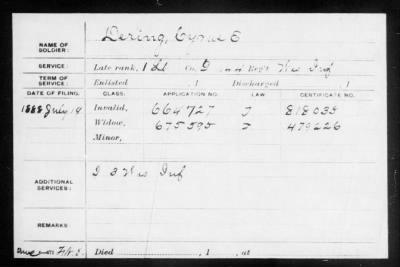 NAME OF SOLDIER: Dering, Cyrus E
SERVICE: Late rank, 1 Lt Co. G 44 Reg't Wis Inf
TERM OF SERVICE: Enlisted , 1 Discharged , 1
DATE OF FILING. CLASS. APPLICATION NO. LAW. CERTIFICATE NO.
1888 July 19 Invalid, 664727 J 818035
Widow, 675595 479226
Minor,
ADDITIONAL SERVICES: 3 Wis Inf
REMARKS:
Died , 1 , at